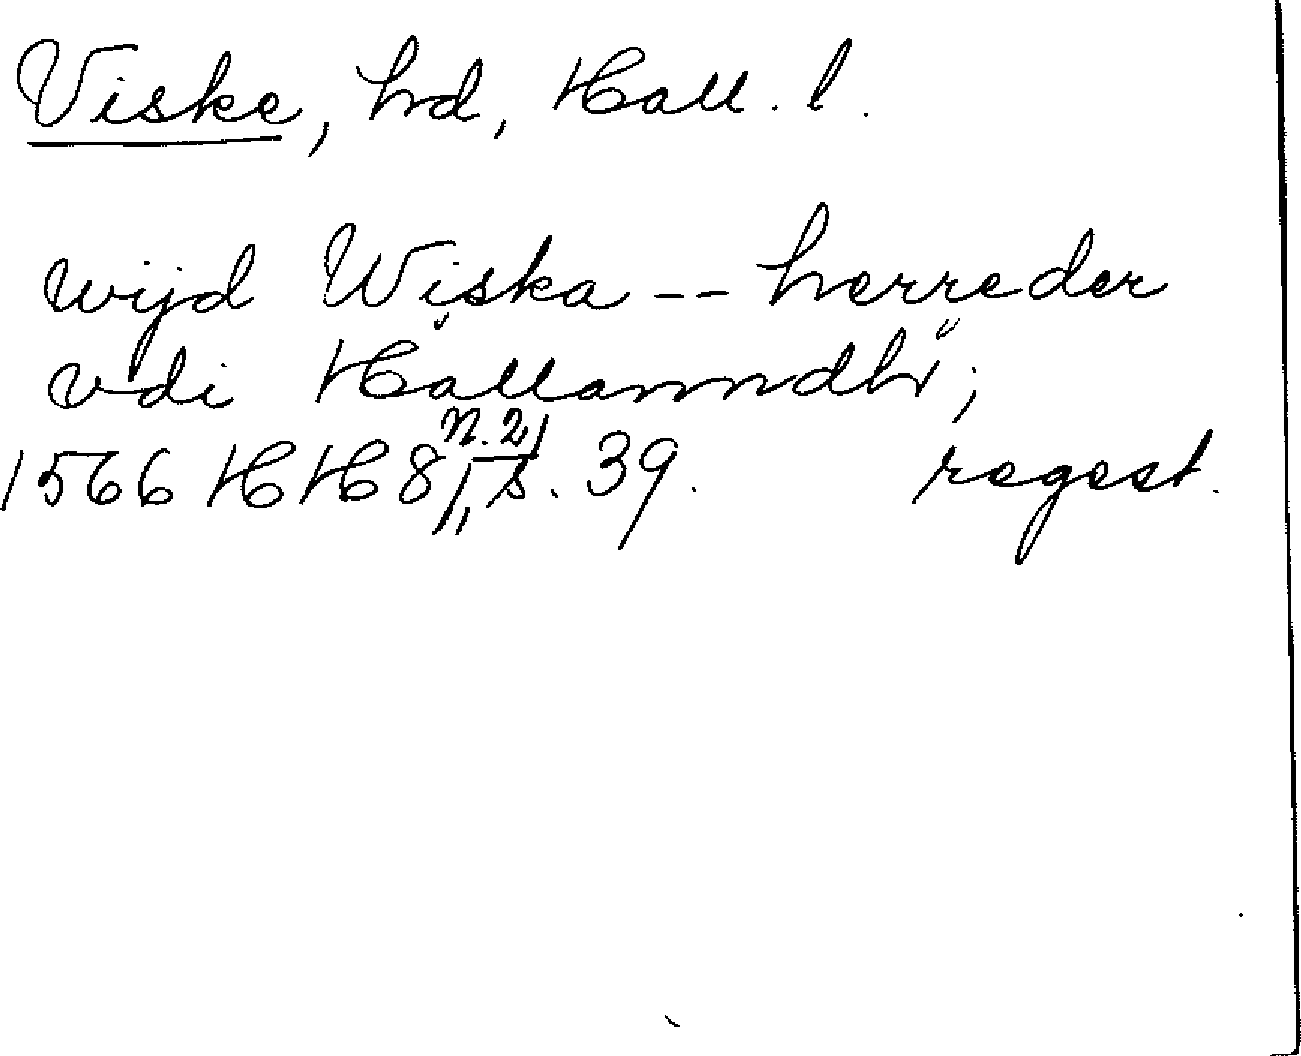 Viske, hd, Hall. l.
wijd Wiska -- herreder
vdi Hallanndh;
1566 HH 8/1, n. 2, s. 39. regest.